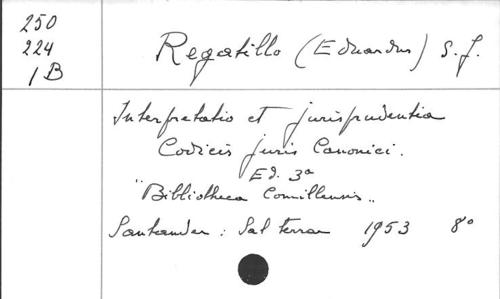 250
224
1 B
Regatillo (Eduardus) S. J.
Interpretatio et jurisprudentia
Codicis juris Canonici.
Ed. 3a
"Bibliotheca Comillensis"
Santander: Sal terrae 1953 8º